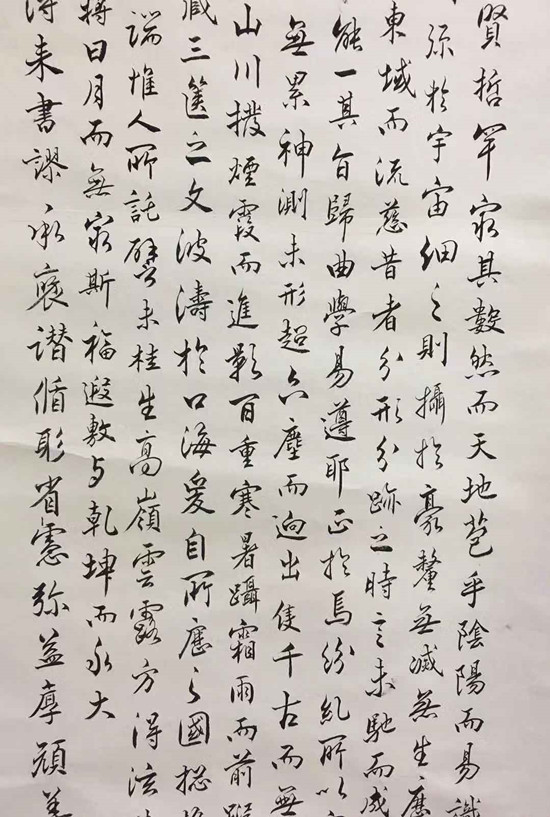 賢哲罕窮其數然而天地苞乎陰陽而易識
弥於宇宙細之則攝於豪釐無滅無生歷
東域而流慈昔者分形分跡之時言未馳而成
能一其旨歸曲學易遵耶正於焉紛糺所以
無累神測未形超六塵而迥出隻千古而無
山川撥煙霞而進影百重寒暑躡霜雨而前蹤
藏三篋之文波濤於口海爰自所歷之國摠
端惟人所託譬夫桂生高嶺雲露方得泫
將日月而無窮斯福遐敷与乾坤而永大
得来書謬承褒讚循躬省慮弥益厚顔善